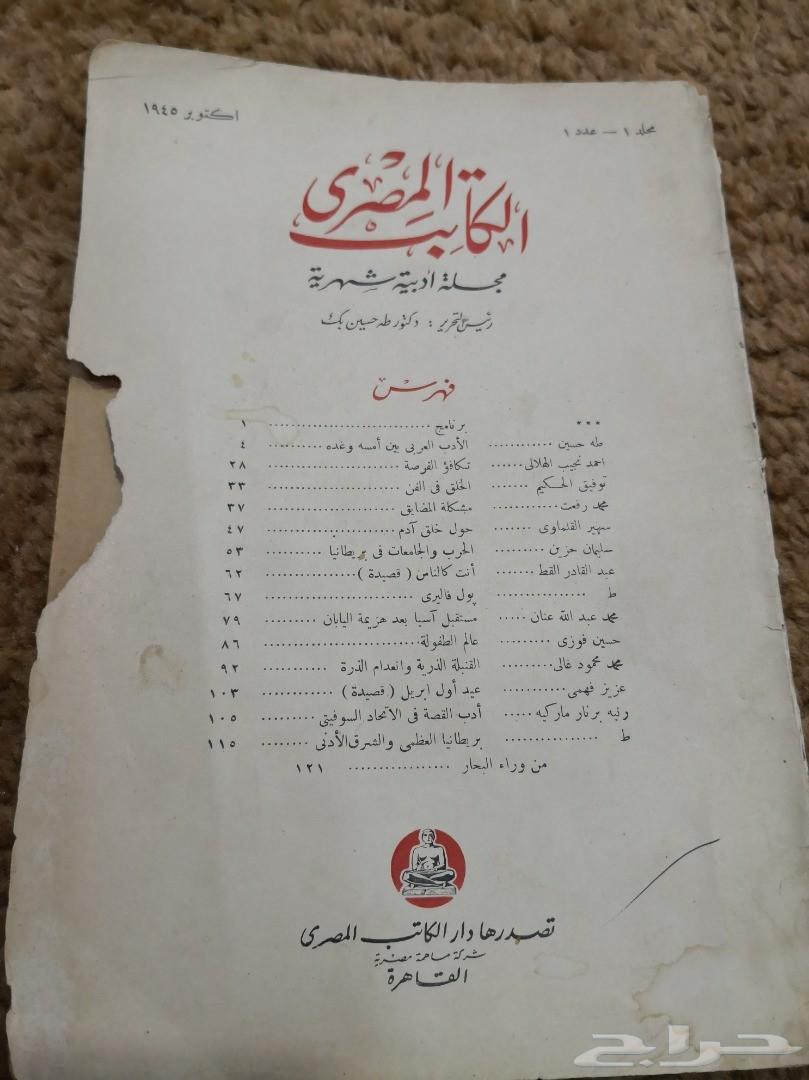 مجلد ١ — عدد ١
اكتوبر ١٩٤٥
الكاتب المصرى
مجلة أدبية شهرية
رئيس التحرير : دكتور طه حسين بك
فهرس
*** برنامج ............ ١
طه حسين ............ الأدب العربى بين أمسه وغده .......... ٤
احمد نجيب الهلالى ...... تكافؤ الفرصة ............ ٢٨
توفيق الحكيم ....... الخلق فى الفن ............ ٣٣
محمد رفعت ............ مشكلة المضايق ............ ٣٧
سهير القلماوى ....... حول خلق آدم ............ ٤٧
سليمان حزين ......... الحرب والجامعات فى بريطانيا .......... ٥٣
عبد القادر القط ....... أنت كالناس ( قصيدة ) ............ ٦٢
ط ............ پول فاليرى ............ ٦٧
محمد عبد الله عنان ..... مستقبل آسيا بعد هزيمة اليابان ......... ٧٩
حسين فوزى ......... عالم الطفولة ............ ٨٦
محمد محمود غالى ......... القنبلة الذرية وانعدام الذرة ........... ٩٢
عزيز فهمى ........... عيد أول ابريل ( قصيدة ) ............ ١٠٣
رنيه برنار ماركيه ..... أدب القصة فى الاتحاد السوفيتى ......... ١٠٥
ط ............ بريطانيا العظمى والشرق الأدنى ........ ١١٥
من وراء البحار ................. ١٢١
تصدرها دار الكاتب المصرى
شركة مساهمة مصرية
القاهرة
حراج